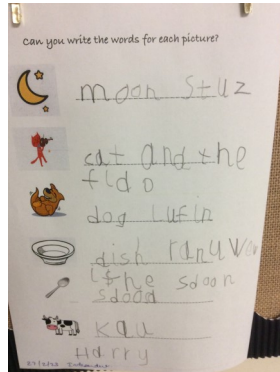 can you write the words for each picture?
moon stuz
cat and the
fldo
dog lufin
dish ranuw
the sdoon
sdood
kau
Harry